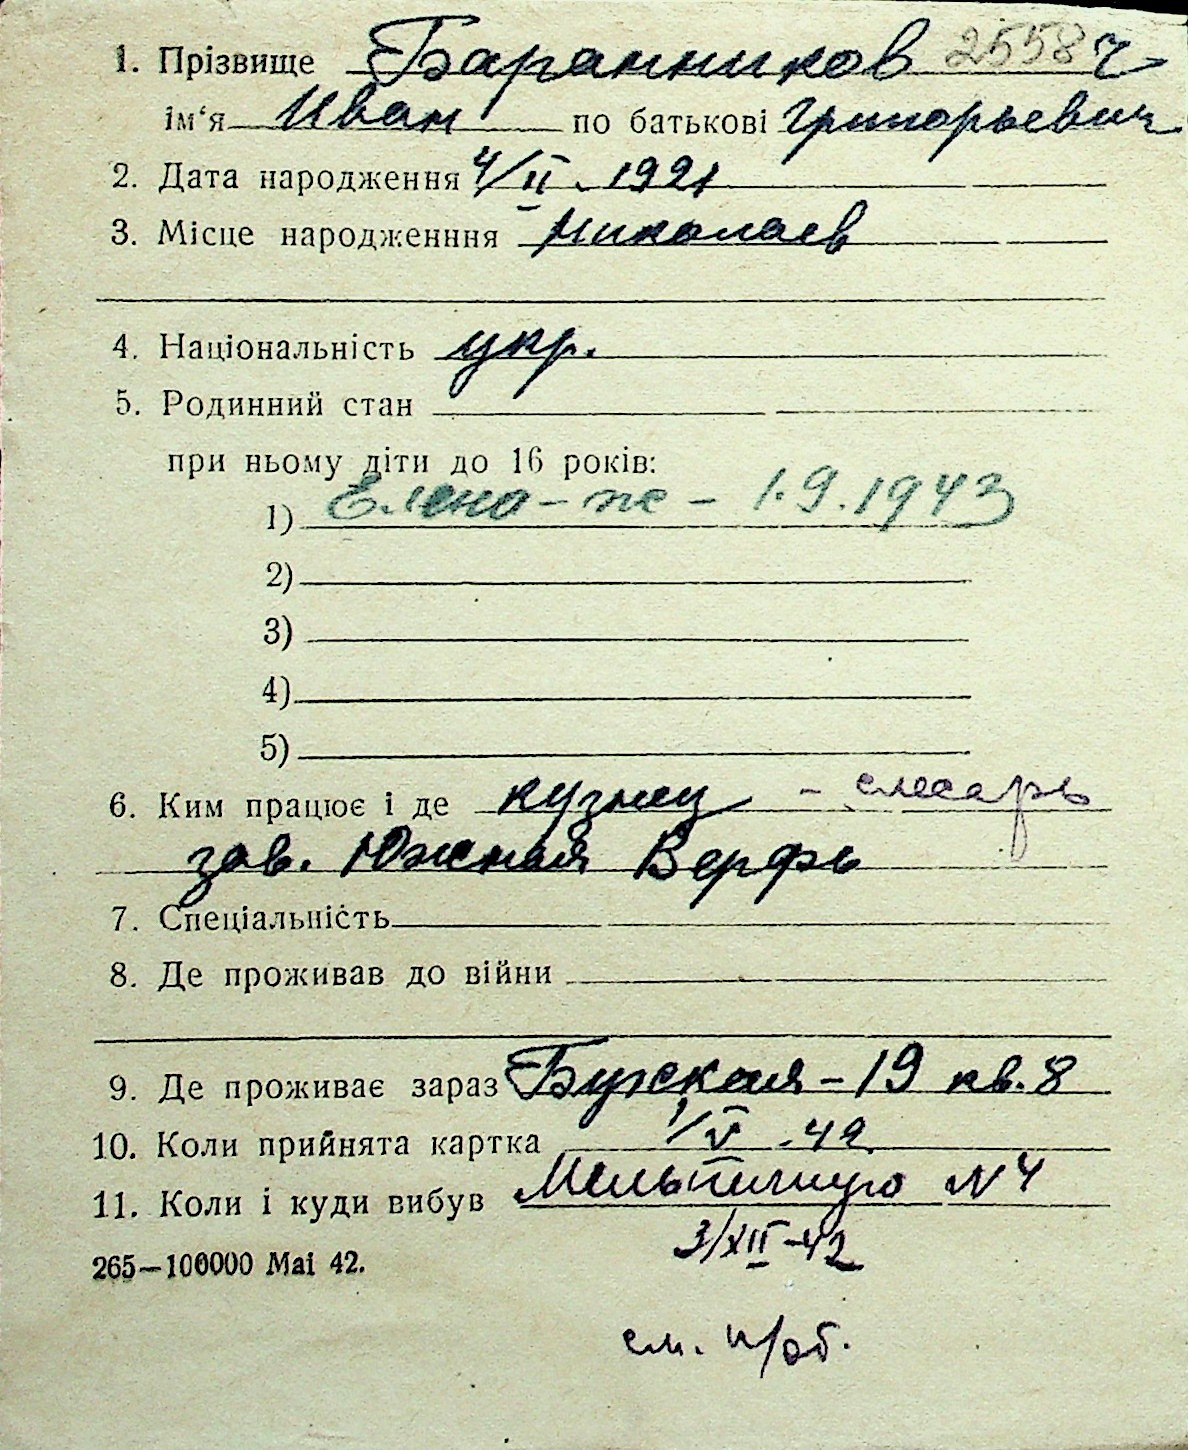 1. Прізвище Баранников 2558 ч
ім'я Иван по батькові Григорьевич
2. Дата народження 4/II. 1921
3. Місце народженння Николаев
4. Національність укр.
5. Родинний стан
при ньому діти до 16 років:
1) Елена - ж - 1.9.1943
2)
3)
4)
5)
6. Ким працює і де кузнец - слесарь
зав. Южная Верфь
7. Спеціальність
8. Де проживав до війни
9. Де проживає зараз Бужская - 19 кв. 8
10. Коли прийнята картка 1/V - 42
11. Коли і куди вибув Мельничную N 4
3/XII - 42
265—100000 Mai 42.
см. н/об.